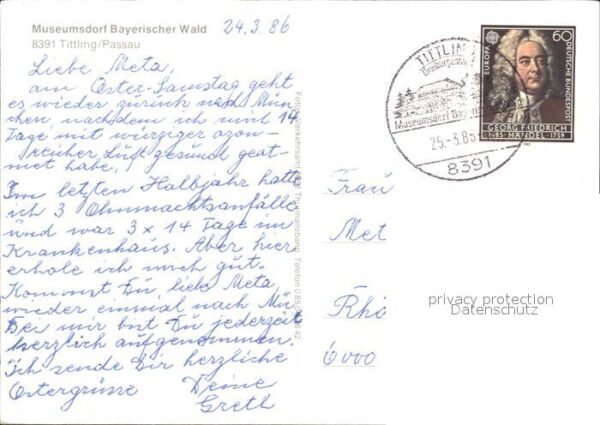 Museumsdorf Bayerischer Wald
8391 Tittling/Passau
24.3.86
Liebe Meta,
am Oster-Samstag geht
es wieder zurück nach Mün-
chen nachdem ich mal 14
Tage mit würziger ozon-
reicher Luft gesund geat-
met habe.
Im letzten Halbjahr hatte
ich 3 Ohnmachtsanfälle
und war 3 x 14 Tage im
Krankenhaus. Aber hier
erhole ich mich gut.
Kommst Du liebe Meta,
wieder einmal nach Mü
Bei mir bist Du jederzeit
herzlich aufgenommen.
Ich sende Dir herzliche
Ostergrüsse Deine
Gretl
TITTLIN
Museumsdorf Bay
8391
60
EUROPA
DEUTSCHE BUNDESPOST
GEORG FRIEDRICH
1685 HÄNDEL 1759
Frau
Met
Rhö
privacy protection
Datenschutz